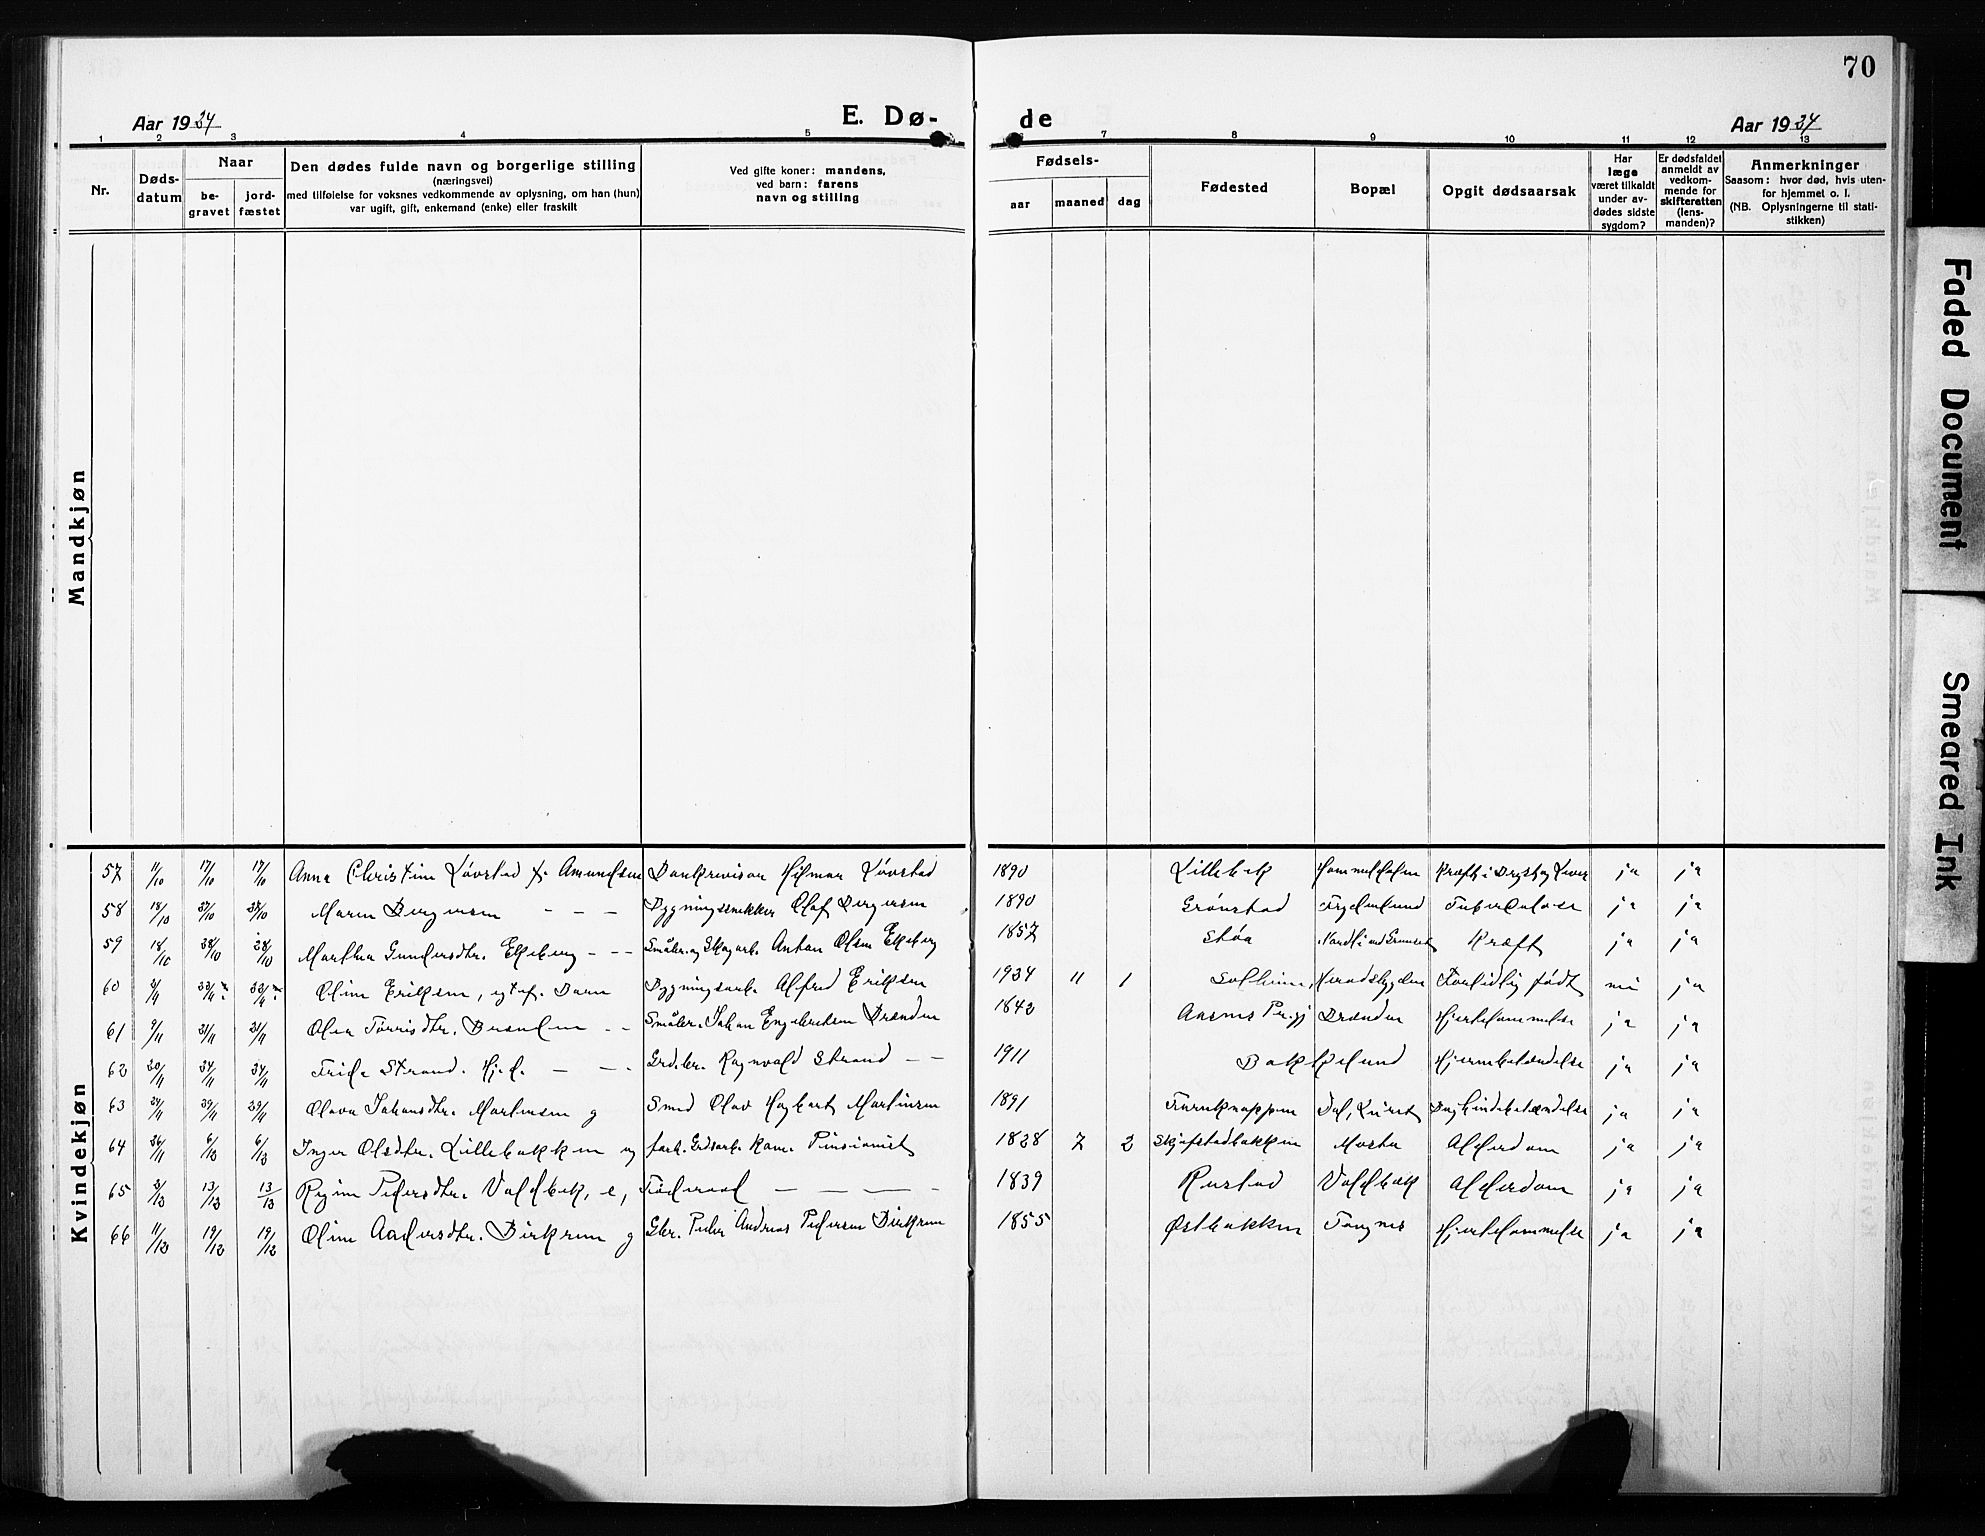 70
Aar 1934
E. Dø-
de
Aar 1934
1 2 3 4 5 7 8 9 10 11 12 13
Nr.
Døds-
datum
Naar
be-
gravet
jord-
fæstet
Den dødes fulde navn og borgerlige stilling
(næringsvei)
med tilføielse for voksnes vedkommende av oplysning, om han (hun)
var ugift, gift, enkemand (enke) eller fraskilt
Ved gifte koner: mandens,
ved barn: farens
navn og stilling
Fødsels-
aar
maaned
dag
Fødested
Bopæl
Opgit dødsaarsak
Har
læge
været tilkaldt
under av-
dødes sidste
sygdom?
Er dødsfaldet
anmeldt av
vedkom-
mende for
skifteretten
(lens-
manden)?
Anmerkninger
Saasom: hvor død, hvis uten-
for hjemmet o. l.
(NB. Oplysningerne til stati-
stikken)
Mandkjøn
Kvindekjøn
57 11/10 17/10 17/10 Anna Christine Løvstad f. Amundsen Bankrevisor Hilmar Løvstad 1890 Lillebek ja ja
58 18/10 Maren Bergersen - - - Bygningssnekker Olaf Bergersen 1890 Grønstad Frydenlund Tuberkulose ja ja
59 18/10 28/10 28/10 Martha Gundersdtr. Ekeberg - - - Småbr. og Skogarb. Anton Olsen Ekeberg 1857 Støa Kræft ja ja
60 Oline Eriksen, Barn Bygningsarb. Alfred Eriksen 1934 11 1 Solheim, Heradsbygden For tidlig født nei ja
61 9/11 21/11 21/11 Olea Torrisdtr. Brænden - - Småbr. Johan Engebretsen Brænden 1842 Brænden Hjertelammelse ja ja
62 20/11 24/11 24/11 Frida Strand. - - - Grdbr. Ragnvald Strand - - 1911 Bakkelund Hjernebetændelse ja ja
63 29/11 29/11 Olava Johansdtr. Martinsen g Smed Olav Hagbart Martinsen 1891 Furuknappen Bughindebetændelse ja ja
64 26/11 6/12 6/12 Inger Olsdtr. Lillebakken ug Pensionist 1838 7 2 Skjefstadbakken Alderdom ja ja
65 13/12 13/12 Regine Pedersdtr. Voldbek, e, Føderaad - - - - 1839 Rustad Voldbæk Alderdom ja ja
66 11/12 19/12 19/12 Oline Andersdtr. Birkrem g Gbr. Peder Andreas Pedersen Birkrem 1855 Østbakken Hjertelammelse ja ja
Faded Document
Smeared Ink